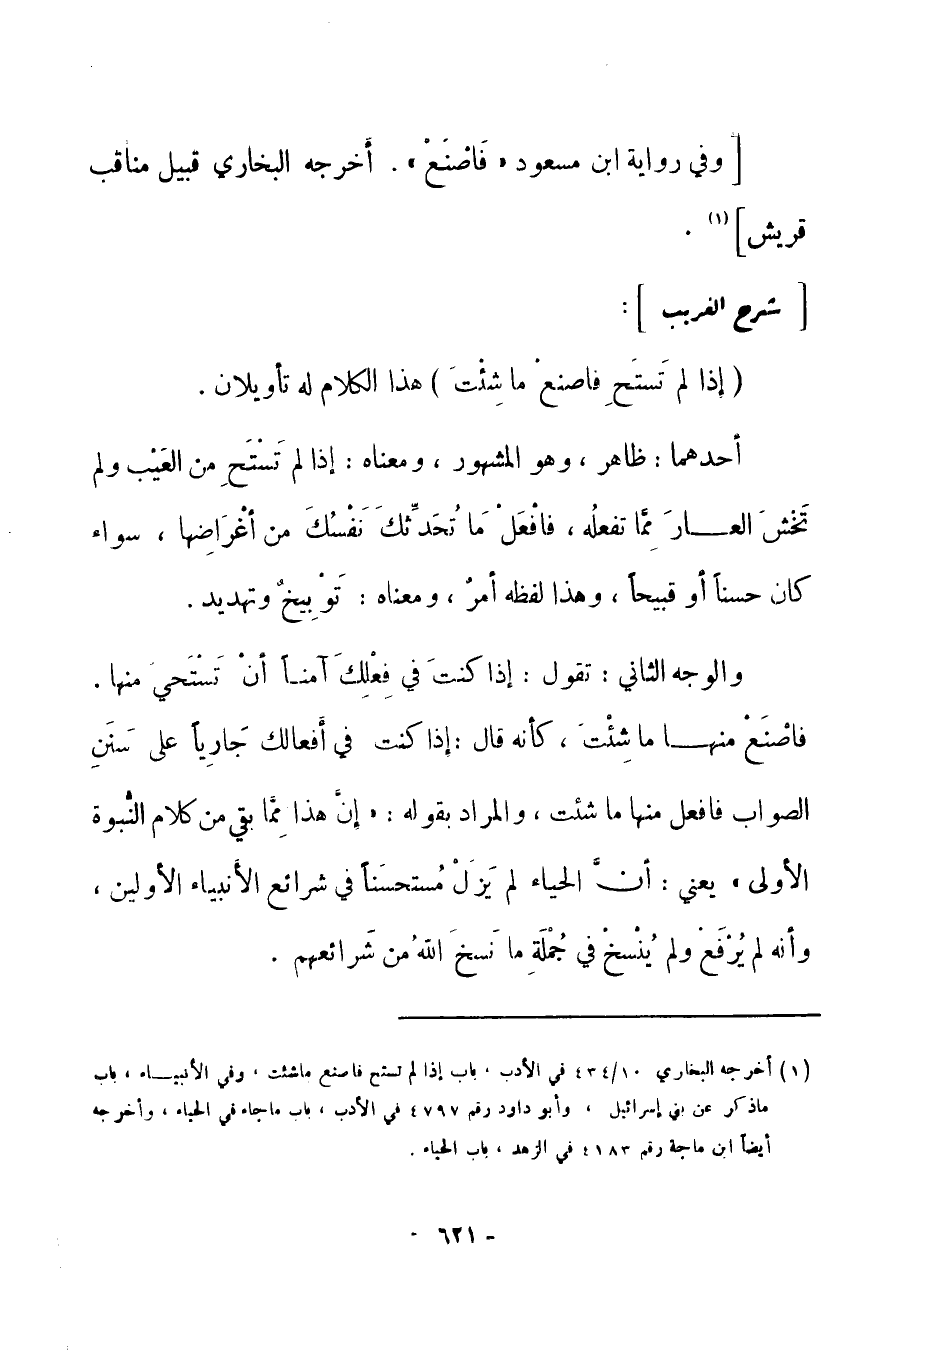 [وفي رواية ابن مسعود «فَاصْنَعْ» . أَخرجه البخاري قبيل مناقب
قريش] (١) .
[ شرح الغريب ] :
( إذا لم تَستَحِ فاصنعْ ما شِئْتَ ) هذا الكلام له تأويلان .
أحدهما : ظاهر ، وهو المشهور ، ومعناه : إذا لم تَسْتَحِ من العَيْب ولم
تَخْشَ العـــارَ مِمَّا تفعلُه ، فافْعَلْ مَا تُحَدِّثُكَ نَفْسُكَ من أغْرَاضِها ، سواء
كان حسناً أو قبيحاً ، وهذا لفظه أمرٌ ، ومعناه : تَوْبِيخٌ وتهديد .
والوجه الثاني : تقول : إذا كنتَ في فِعْلِكَ آمنـاً أنْ تَسْتَحيَ منها .
فاصْنَعْ منهـــا ما شِئْتَ ، كأنه قال : إذا كنت في أَفعالك جَارِياً على سَنَنِ
الصواب فافعل منها ما شئت ، والمراد بقوله : « إنَّ هذا مِمَّا بقي من كلام النُّبوة
الأولى » يعني : أنَّ الحياء لم يَزَلْ مُستحسَناً في شرائع الأَنبياء الأولين ،
وأنه لم يُرْفَعْ ولم يُنْسخْ في جُمْلَةِ ما نَسخَ اللهُ من شَرائعهم .
(١) أخرجه البخاري ٤٣٤/١٠ في الأدب ، باب إذا لم تستح فاصنع ماشئت ، وفي الأنبيـــاء ، باب
ماذكر عن بني إسرائيل ، وأبو داود رقم ٤٧٩٧ في الأدب ، باب ماجاء في الحياء ، وأخرجه
أيضاً ابن ماجة رقم ٤١٨٣ في الزهد ، باب الحياء .
- ٦٢١ -